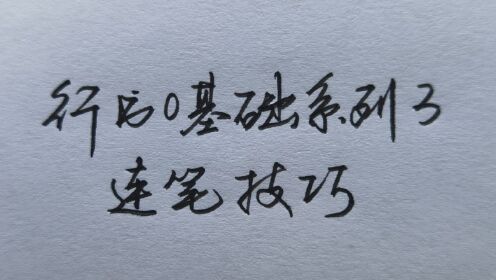 行书0基础系列3
连笔技巧